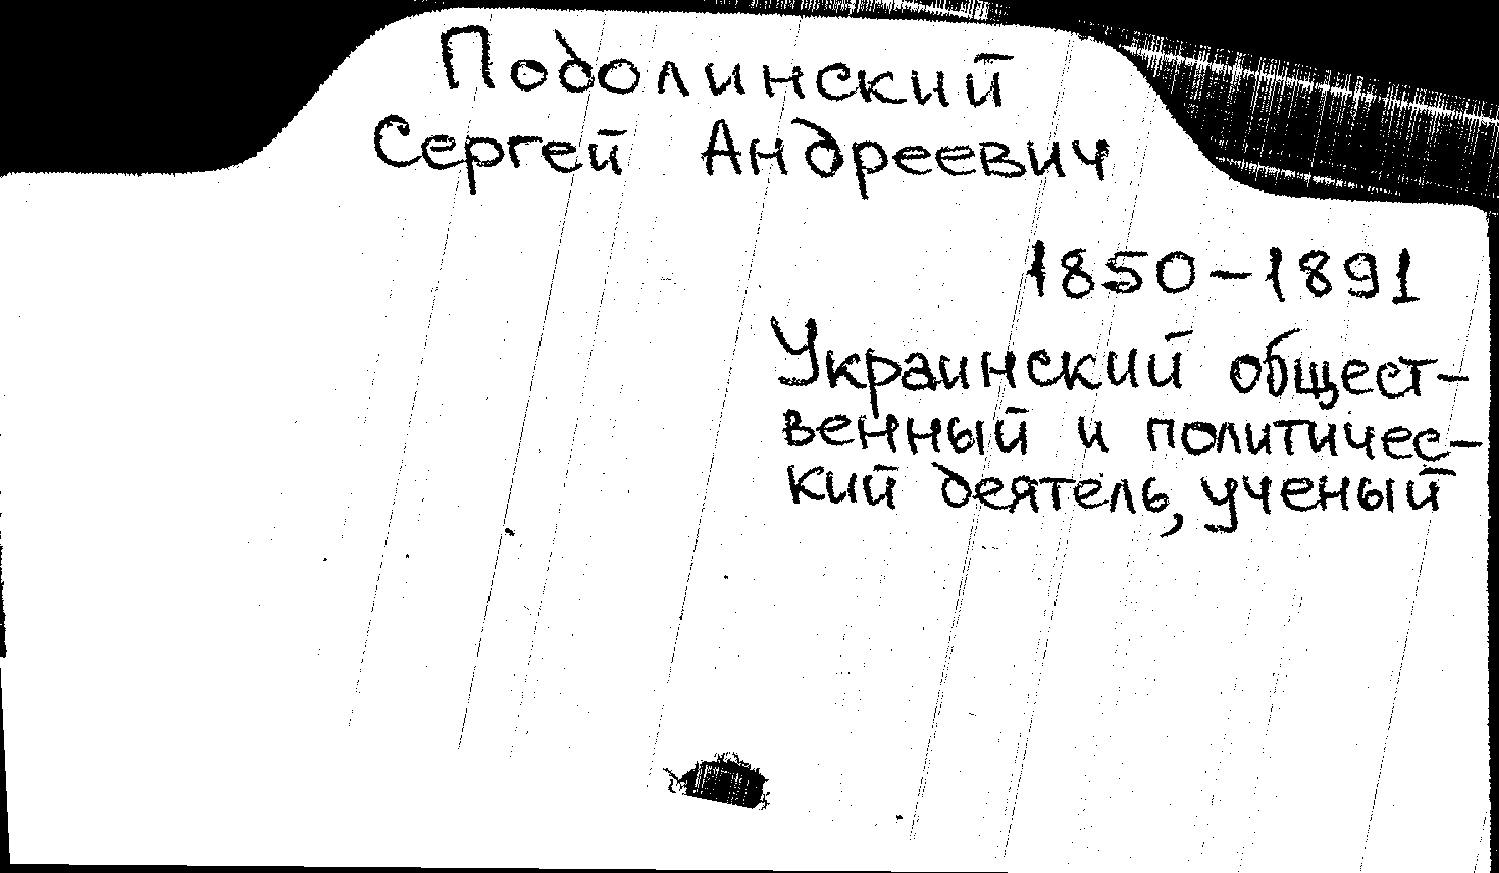 Подолинский
Сергей Андреевич
1850-1891
Украинский общест-
венный и политичес-
кий деятель, ученый